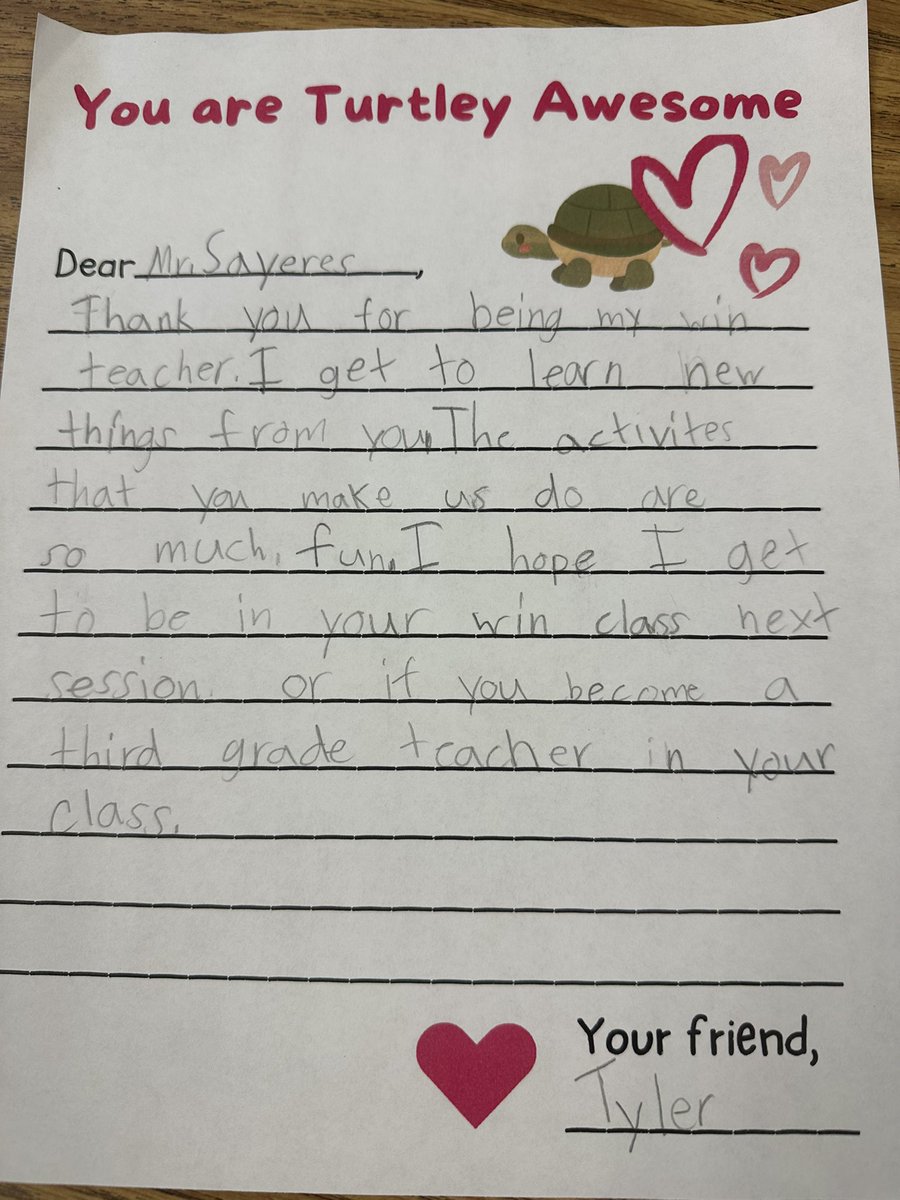 You are Turtley Awesome
Dear Mr. Sayeres,
Thank you for being my win
teacher. I get to learn new
things from you. The activites
that you make us do are
so much. fun. I hope I get
to be in your win class next
session. or if you become a
third grade teacher in your
class.
Your friend,
Tyler